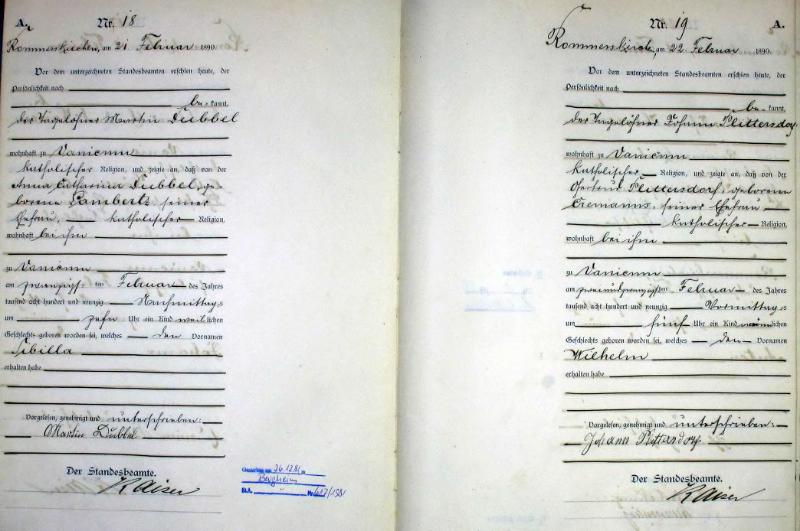 A. Nr. 18
Rommerskirchen, am 21 Februar 1890.
Vor dem unterzeichneten Standesbeamten erschien heute, der
Persönlichkeit nach
be- kannt,
der Tagelöhner Martin Dübbel
wohnhaft zu Vanicum
katholischer Religion, und zeigte an, daß von der
Anna Catharina Dübbel, ge-
borene Lambertz, seiner
Ehefrau, katholischer Religion,
wohnhaft bei ihm
zu Vanicum
am zwanzigsten Februar des Jahres
tausend acht hundert und neunzig Nachmittags
um zehn Uhr ein Kind weiblichen
Geschlechts geboren worden sei, welches den Vornamen
Sibilla
erhalten habe
Vorgelesen, genehmigt und unterschrieben:
Martin Dübbel
Der Standesbeamte.
Kaiser
26.1.
Bergheim
Nr. 19 A.
Rommerskirchen, am 22 Februar 1890.
Vor dem unterzeichneten Standesbeamten erschien heute, der
Persönlichkeit nach
be- kannt,
der Tagelöhner Johann Plittersdorf
wohnhaft zu Vanicum
katholischer Religion, und zeigte an, daß von der
Gertrud Plittersdorf, geborenen
Cremanns, seiner Ehefrau
katholischer Religion,
wohnhaft bei ihm
zu Vanicum
am zweiundzwanzigsten Februar des Jahres
tausend acht hundert und neunzig Vormittags
um fünf Uhr ein Kind männlichen
Geschlechts geboren worden sei, welches den Vornamen
Wilhelm
erhalten habe
Vorgelesen, genehmigt und unterschrieben:
Johann Plittersdorf
Der Standesbeamte.
Kaiser